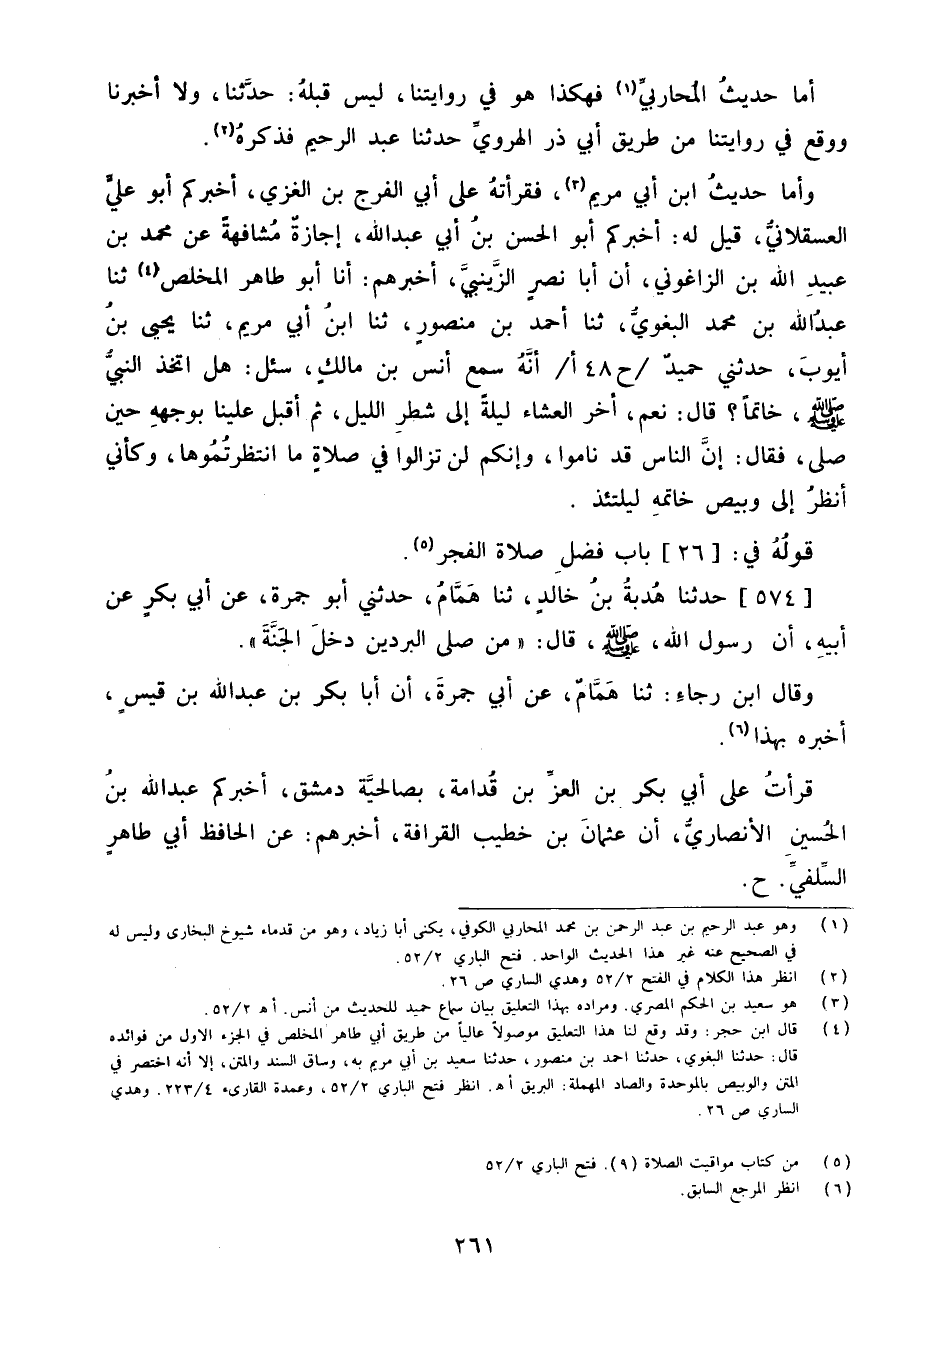 أما حديثُ المُحاربيِّ(١) فهكذا هو في روايتنا، ليس قبلهُ: حدَّثنا، ولا أخبرنا
ووقع في روايتنا من طريق أبي ذر الهرويِّ حدثنا عبد الرحيم فذكرهُ(٢).
وأما حديثُ ابن أبي مريم(٣)، فقرأتهُ على أبي الفرج بن الغزي، أخبركم أبو عليٍّ
العسقلانيُّ، قيل له: أخبركم أبو الحسن بنُ أبي عبدالله، إجازةً مُشافهةً عن محمد بن
عبيدِ الله بن الزاغوني، أن أبا نصرٍ الزَّينبيَّ، أخبرهم: أنا أبو طاهر المخلص(٤) ثنا
عبدُالله بن محمد البغويُّ، ثنا أحمد بن منصورٍ، ثنا ابنُ أبي مريم، ثنا يحيى بنُ
أيوبَ، حدثني حميدٌ /ح٤٨ أ/ أنَّهُ سمع أنس بن مالكٍ، سئل: هل اتخذ النبيُّ
ﷺ، خاتماً؟ قال: نعم، أخر العشاء ليلةً إلى شطرِ الليل، ثم أقبل علينا بوجههِ حين
صلى، فقال: إنَّ الناس قد ناموا، وإنكم لن تزالوا في صلاةٍ ما انتظرتُمُوها، وكأني
أنظرُ إلى وبيص خاتمهِ ليلتئذ .
قولُهُ في: [ ٢٦ ] باب فضلِ صلاة الفجر(٥).
[ ٥٧٤ ] حدثنا هُدبةُ بنُ خالدٍ، ثنا هَمَّامُ، حدثني أبو جمرة، عن أبي بكرٍ عن
أبيهِ، أن رسول الله، ﷺ، قال: « من صلى البردين دخلَ الجَنَّةَ ».
وقال ابن رجاءِ: ثنا هَمَّامٌ، عن أبي جمرةَ، أن أبا بكر بن عبدالله بن قيسٍ،
أخبره بهذا(٦).
قرأتُ على أبي بكر بن العزِّ بن قُدامة، بصالحيَّة دمشق، أخبركم عبدالله بنُ
الحُسينِ الأنصاريُّ، أن عثمانَ بن خطيب القرافة، أخبرهم: عن الحافظ أبي طاهرٍ
السِّلفيِّ. ح.
(١) وهو عبد الرحيم بن عبد الرحمن بن محمد المحاربي الكوفي، يكنى أبا زياد، وهو من قدماء شيوخ البخارى وليس له
في الصحيح عنه غير هذا الحديث الواحد. فتح الباري ٥٢/٢.
(٢) انظر هذا الكلام في الفتح ٥٢/٢ وهدي الساري ص ٢٦.
(٣) هو سعيد بن الحكم المصري. ومراده بهذا التعليق بيان سماع حميد للحديث من أنس. أ هـ ٥٢/٢.
(٤) قال ابن حجر: وقد وقع لنا هذا التعليق موصولاً عالياً من طريق أبي طاهر المخلص في الجزء الاول من فوائده
قال: حدثنا البغوي، حدثنا احمد بن منصور، حدثنا سعيد بن أبي مريم به، وساق السند والمتن، إلا أنه اختصر في
المتن والوبيص بالموحدة والصاد المهملة: البريق أ هـ. انظر فتح الباري ٥٢/٢، وعمدة القارىء ٢٢٣/٤. وهدي
الساري ص ٢٦.
(٥) من كتاب مواقيت الصلاة (٩). فتح الباري ٥٢/٢
(٦) انظر المرجع السابق.
٢٦١